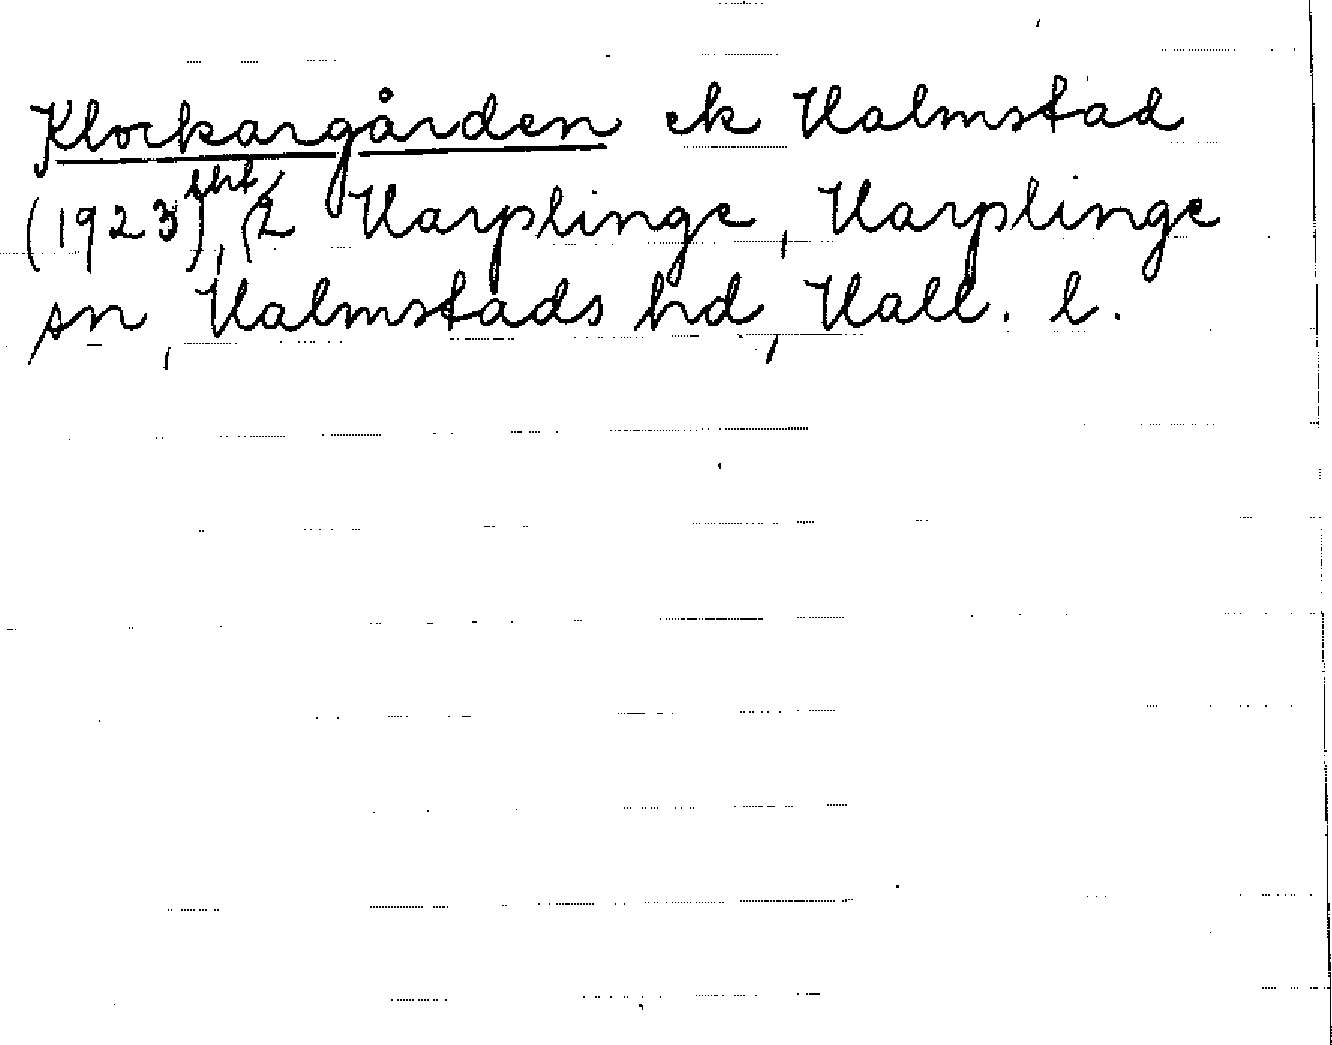 Klockargården ek Halmstad
(1923), Harplinge, Harplinge
sn, Halmstads hd, Hall. l.